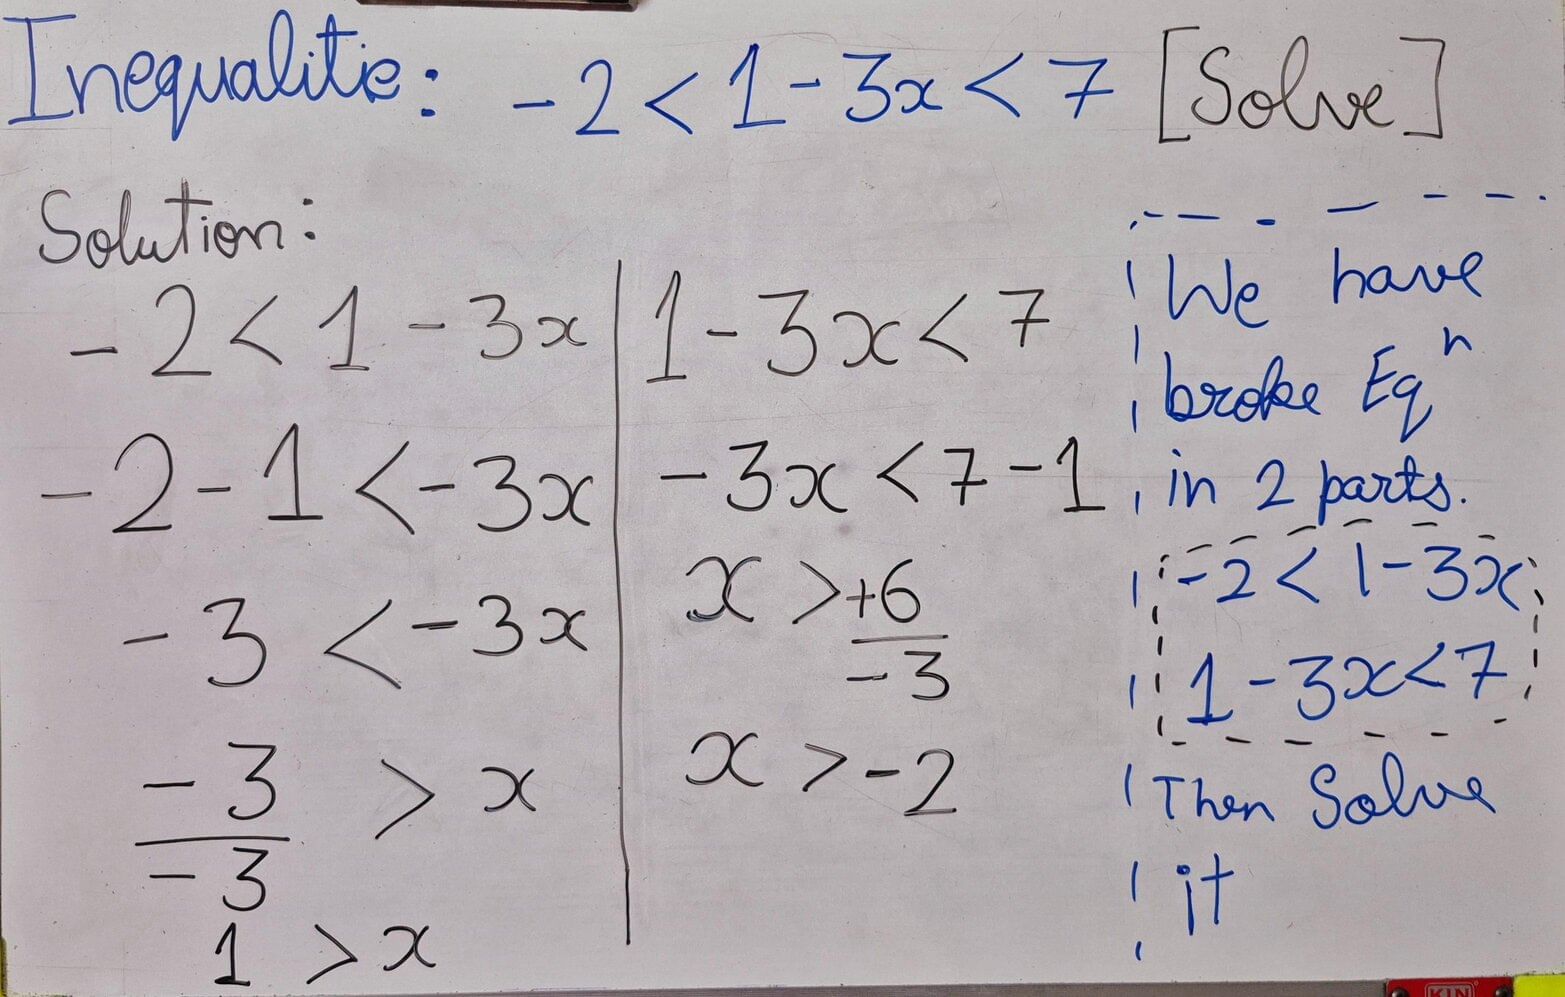 Inequalitie: -2 < 1 - 3x < 7 [Solve]
Solution:
-2 < 1 - 3x
-2 - 1 < -3x
-3 < -3x
-3/-3 > x
1 > x
1 - 3x < 7
-3x < 7 - 1
x > +6/-3
x > -2
We have
broke Eqⁿ
in 2 parts.
-2 < 1 - 3x
1 - 3x < 7
Then Solve
it
KIN